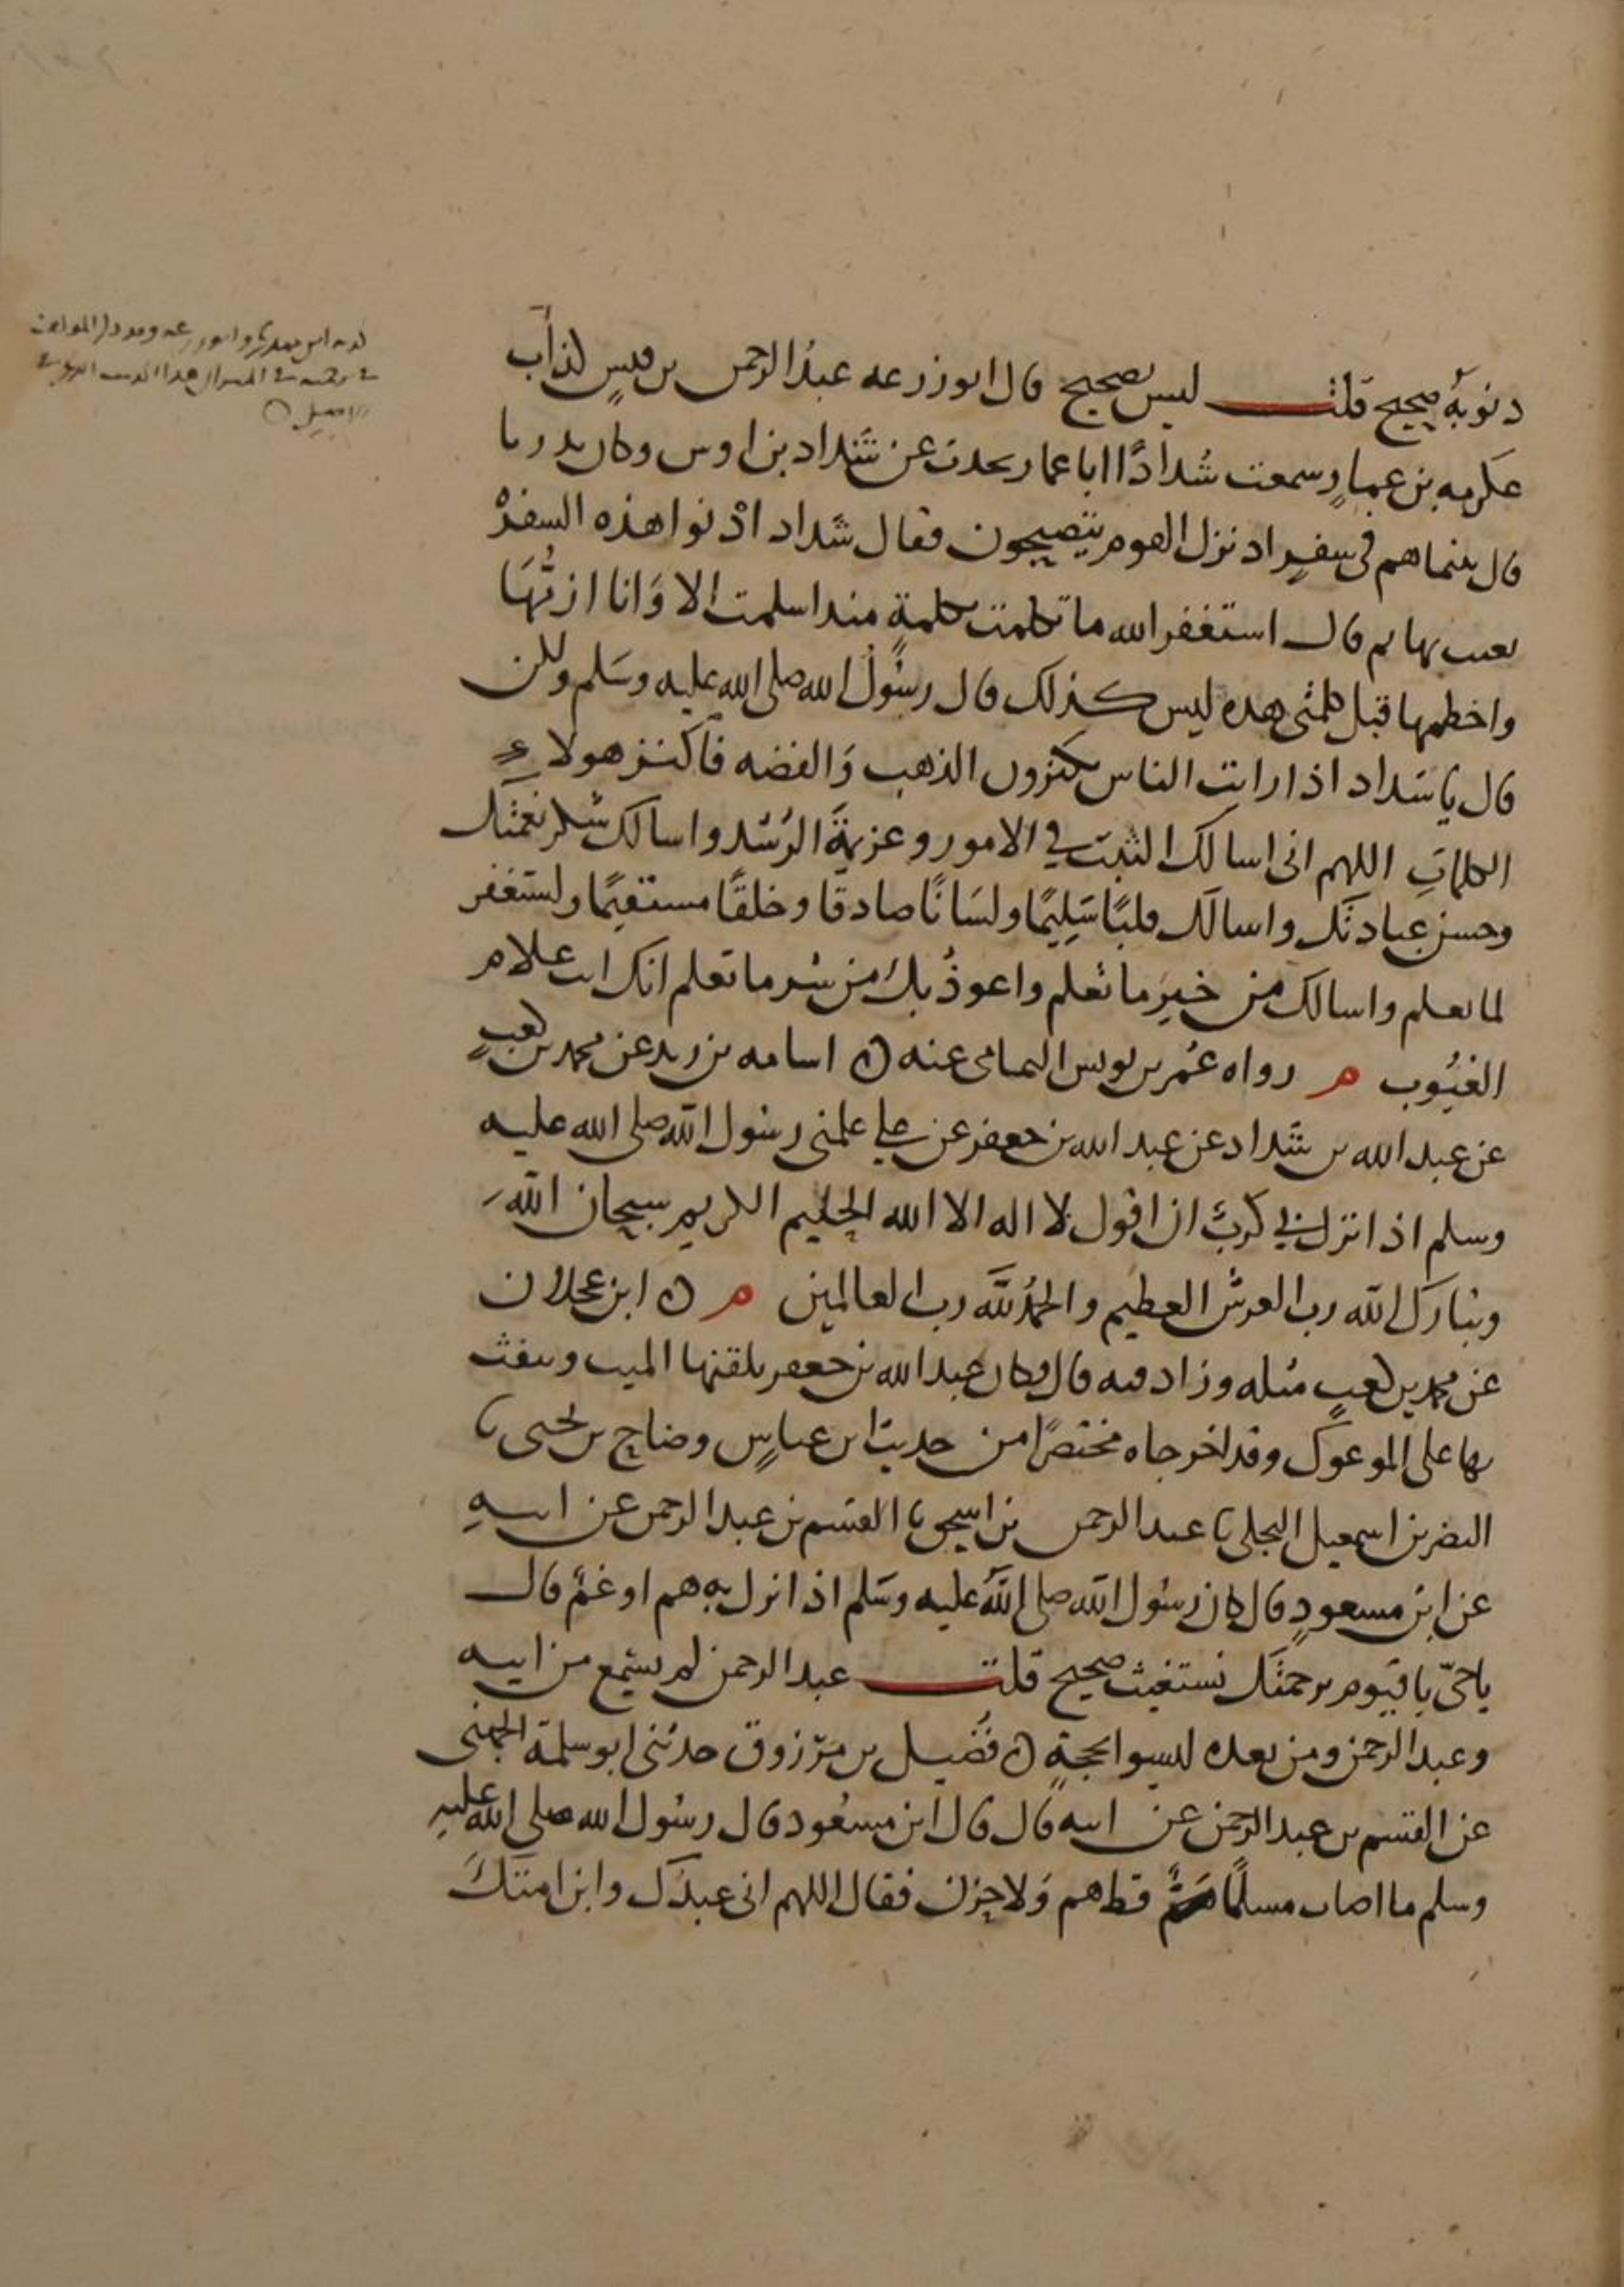 ذنوبه صحيح قلت ليس بصحيح قال ابو زرعه عبد الرحمن بن قيس كذاب
عكرمه بن عمار وسمعت شدادا ابا عمار يحدث عن شداد بن اوس وكان بدريا
قال بينما هم في سفر اذ نزل القوم يتصبحون فقال شداد ادنوا هذه السفرة
نعبث بها ثم قال استغفر الله ما تكلمت بكلمة منذ اسلمت الا وانا ازمها
واخطمها قبل كلمتي هذه ليس كذلك قال رسول الله صلى الله عليه وسلم ولكن
قال يا شداد اذا رايت الناس يكنزون الذهب والفضه فاكنز هولاء
الكلمات اللهم اني اسالك التثبت في الامور وعزيمة الرشد واسالك شكر نعمتك
وحسن عبادتك واسالك قلبا سليما ولسانا صادقا وخلقا مستقيما واستغفر
لما تعلم واسالك من خير ما تعلم واعوذ بك من شر ما تعلم انك انت علام
الغيوب م رواه عمر بن يونس اليمامي عنه ۞ اسامه بن زيد عن محمد بن كعب
عن عبد الله بن شداد عن عبد الله بن جعفر عن علي علمني رسول الله صلى الله عليه
وسلم اذا نزل بي كرب ان اقول لا اله الا الله الحليم الكريم سبحان الله
وتبارك الله رب العرش العظيم والحمد لله رب العالمين م ۞ ابن عجلان
عن محمد بن كعب مثله وزاد فيه قال وكان عبد الله بن جعفر يلقنها الميت وينفث
بها على الموعوك وقد اخرجاه مختصرا من حديث ابن عباس وضاح بن يحيى نا
النضر بن اسمعيل البجلي نا عبد الرحمن بن اسحق نا القسم بن عبد الرحمن عن ابيه
عن ابن مسعود قال كان رسول الله صلى الله عليه وسلم اذا نزل به هم او غم قال
يا حي يا قيوم برحمتك نستغيث صحيح قلت عبد الرحمن لم يسمع من ابيه
وعبد الرحمن ومن بعده ليسوا بحجة ۞ فضيل بن مرزوق حدثني ابو سلمة الجهني
عن القسم بن عبد الرحمن عن ابيه قال قال ابن مسعود قال رسول الله صلى الله عليه
وسلم ما اصاب مسلما قط هم ولا حزن فقال اللهم اني عبدك وابن امتك